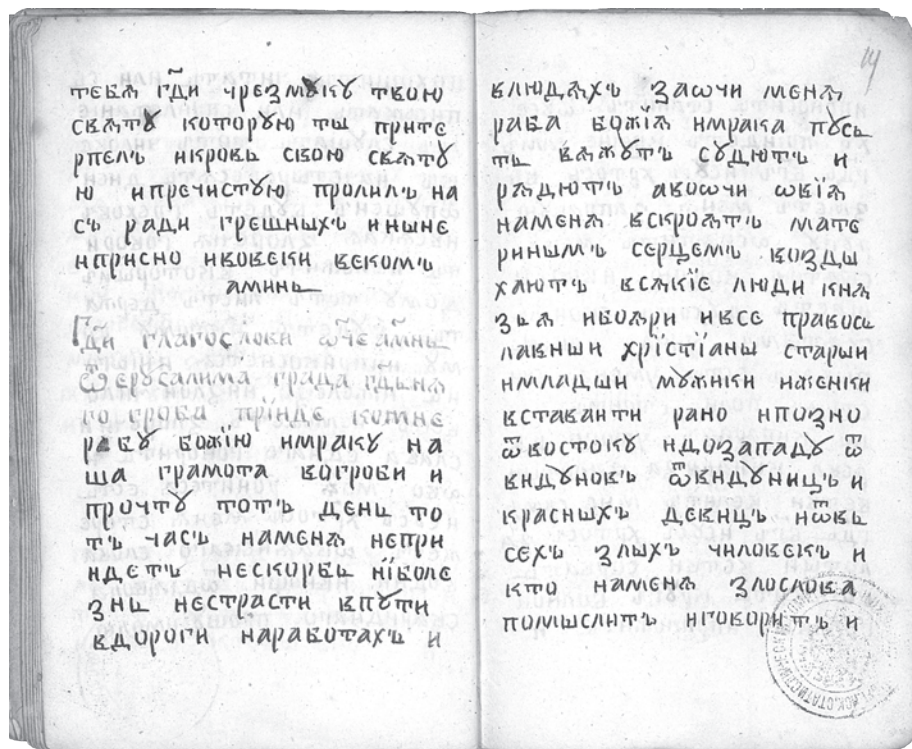 тебѧ гд҃и чрезмꙋкꙋ твою
свѧтꙋ которꙋю ты прите
рпелъ икровь свою свѧтꙋ
ю ипречистꙋю пролилъ на
съ ради грешныхъ иныне
иприсно ивовеки векомъ
аминь
Гд҃и глагослови ѿч҃е ам҃нь
Ѿ ерꙋсалима града гдьнѧ
го гроба прїиде комне
рабꙋ божїю имракꙋ на
ша грамота вогробѣ и
прочтꙋ тотъ день то
тъ часъ наменѧ непри
идетъ нескорбь нїболе
знь нестрасти впꙋти
вдороги наработахъ и
влюдѧхъ заѡчи менѧ
раба божїѧ имрака пꙋсь
ть вѧжꙋтъ сꙋдютъ и
рѧдютъ авоѡчи ѡвїѧ
наменѧ вскроѧтъ мате
ринымъ серцемъ возды
хаютъ всѧкїе люди кнѧ
зьѧ ибоѧри ивсе правосъ
лавныи хрїстїаны старыи
имладыи мꙋжики иженки
вставаити рано ипоизно
ѿвостокꙋ идозападꙋ ѿ
видꙋновъ ѿвидꙋницъ и
красныхъ девицъ иѿвь
сехъ злыхъ чиловекъ и
кто наменѧ злослова
помыслитъ иговоритъ и
14